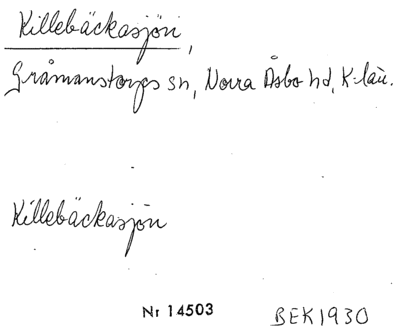 Killebäckasjön,
Gråmanstorps sn, Norra Åsbo hd, K-län.
Killebäckasjön
Nr 14503 BEK1930